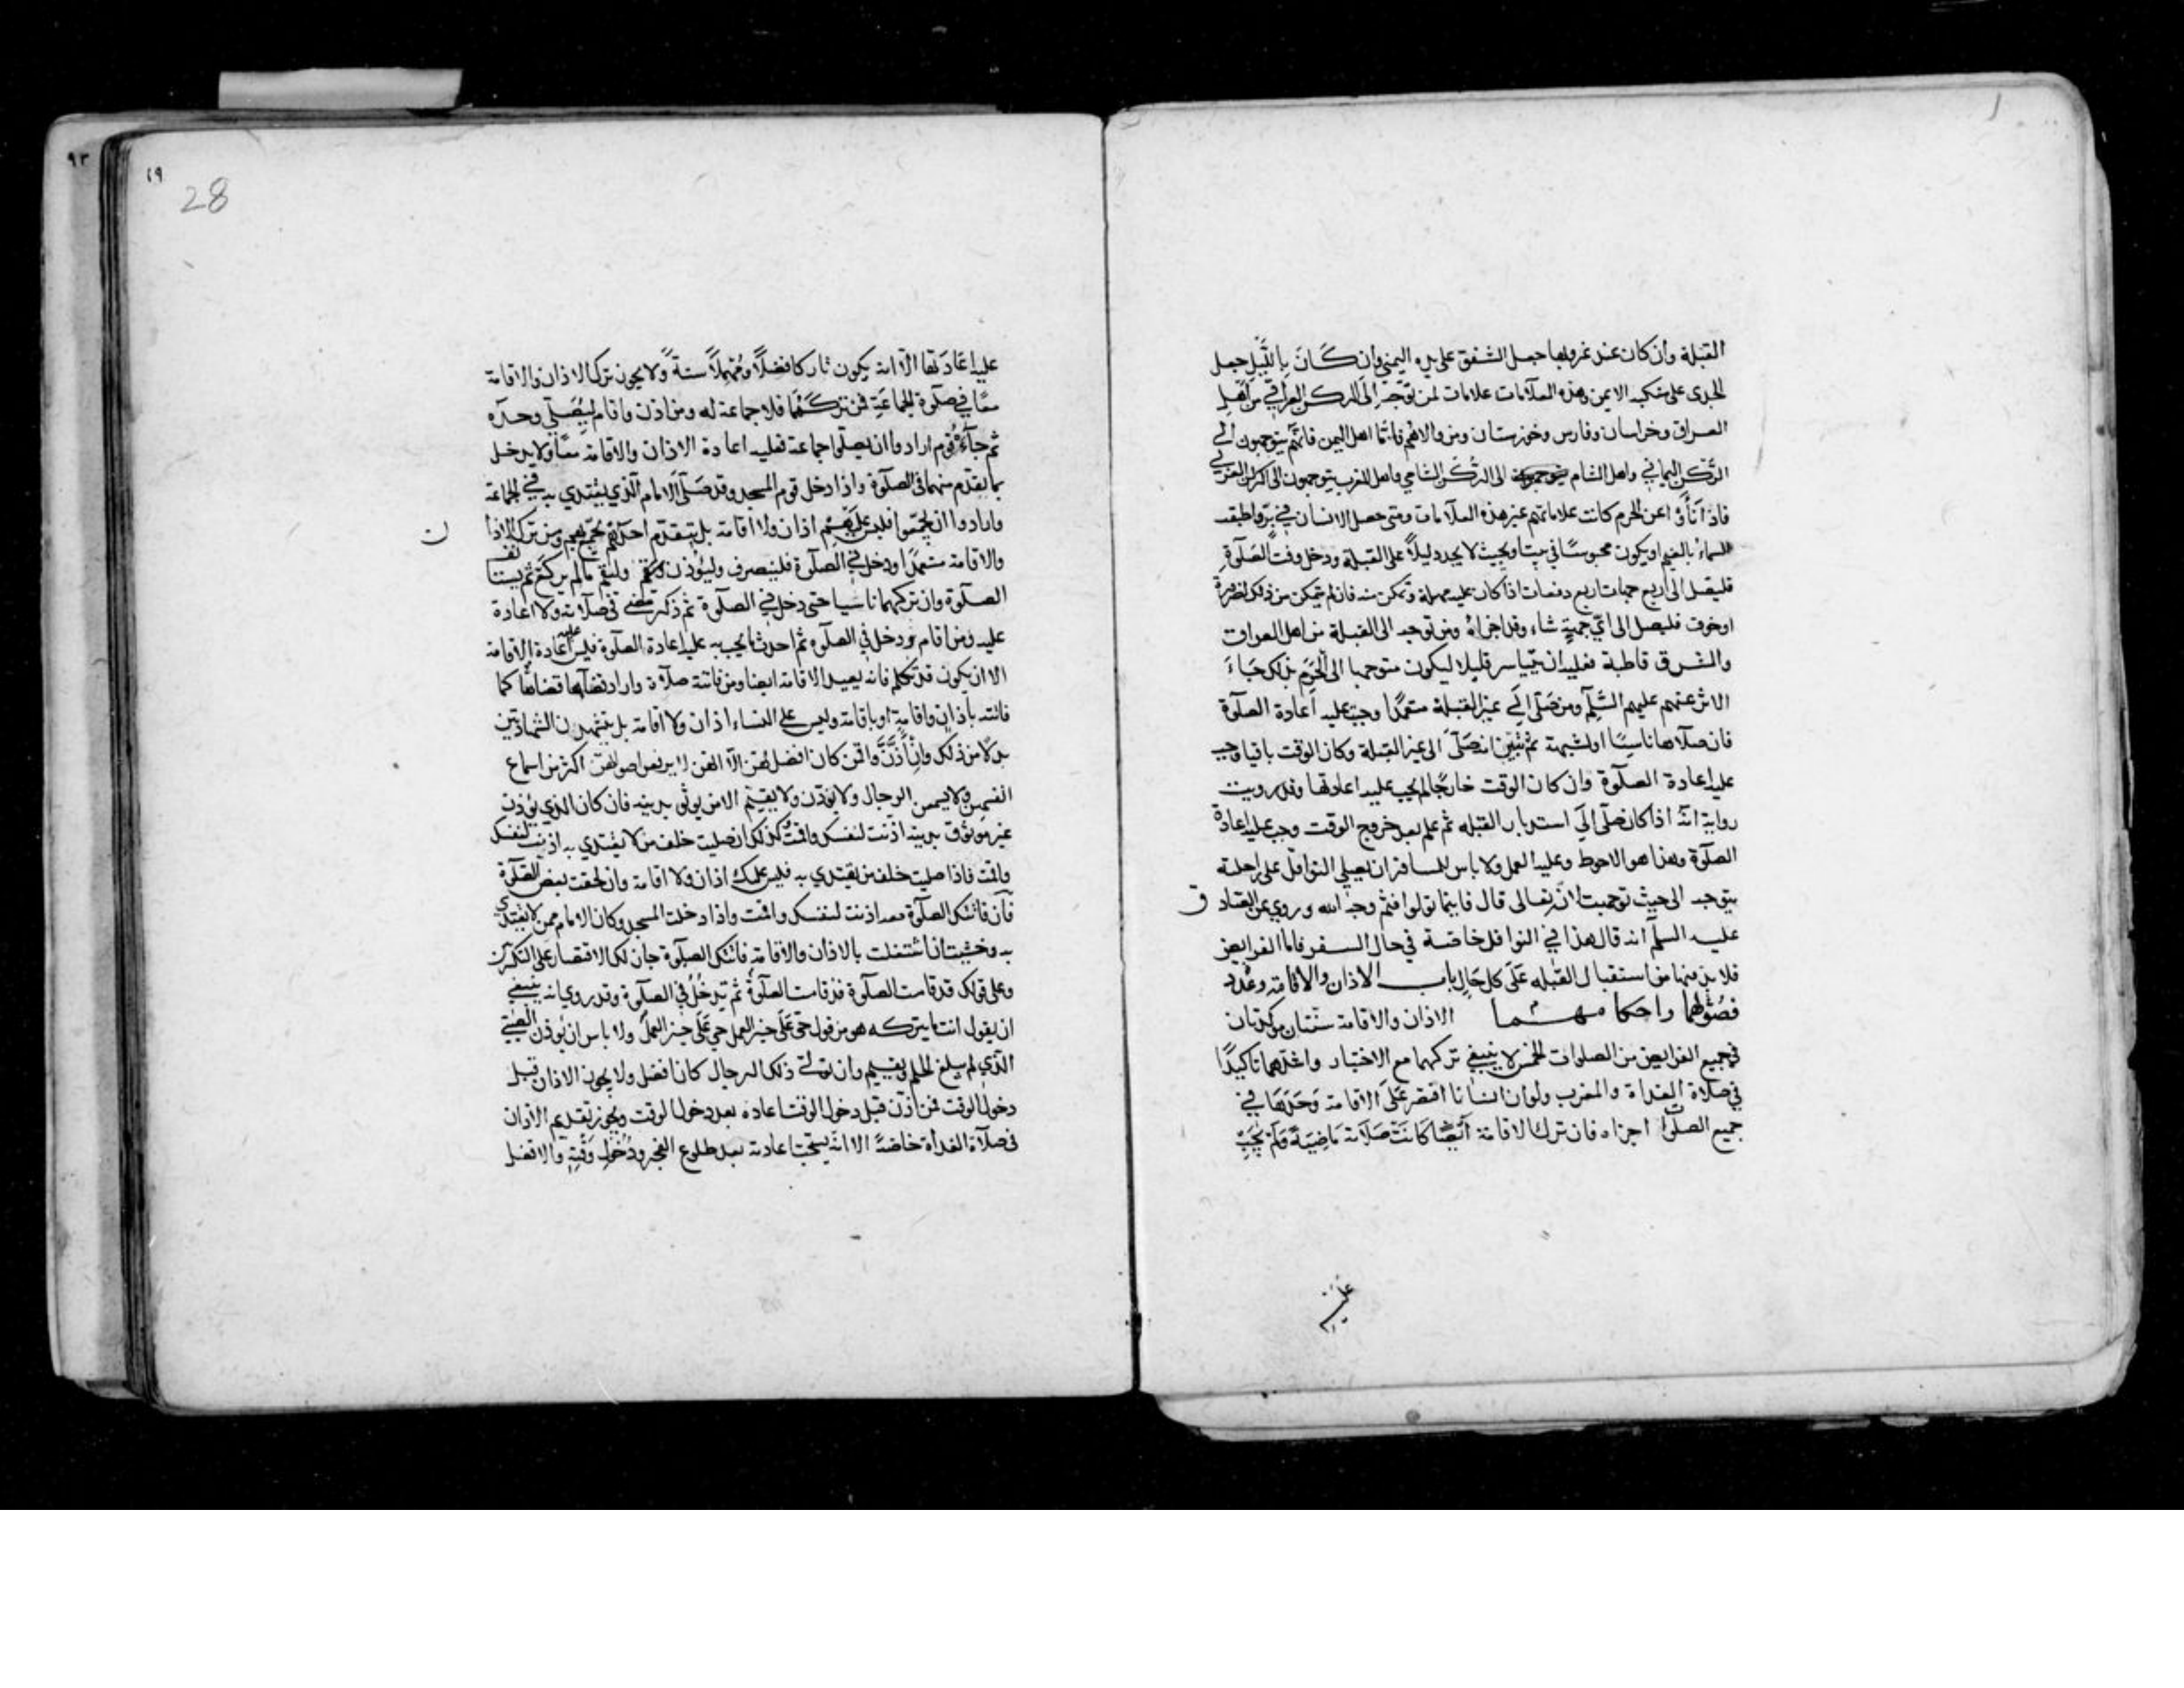 القبلة وان كان عند غروبها جعل الشفق على يده اليمنى وان كَانَ بِاللَّيلِ جعل
الجدى على منكبه الايمن وهذه العلامات علامات لمن توّجه الى الركن العراقي من اهل
العراق وخراسان وفارس وخوزستان ومن والاهم فامّا اهل اليمن فانّهم يتوجهون الى
الرّكن اليماني واهل الشام يتوجهون الى الرّكن الشامي واهل الغرب يتوجهون الى الركن الغربي
فاذا نأوا عن الحرم كانت علاماتهم غير هذه العلامات ومتى حصل الانسان في برّ واطبقت
السماء بالغيم او يكون محبوسًا في بيت او بحيث لا يجد دليلاً على القبلة ودخل وقت الصّلوة
فليصل الى اربع جهات اربع دفعات اذا كان عليه مهلة وتمكن منه فان لم يتمكن من ذلك لضرورة
او خوف فليصل الى اىّ جهةٍ شاء وقد اجزاهُ ومن توجه الى القبلة من اهل العراق
والشرق قاطبة فعليه ان يتياسر قليلا ليكون متوجها الى الحَرَم بذلك جَاءَ
الاثر عنهم عليهم السّلم ومن صَلّى الَى غير القبلة متعمّدًا وجب عليه اعادة الصلوة
فان صلاها ناسيًا او لشبهة ثمّ تبيّن انه صَلّى الى غير القبلة وكان الوقت باقيا وجب
عليه اعادة الصلوة وان كان الوقت خارجًا لم يجب عليه اعادتها وقد رويت
رواية انّه اذا كان صَلّى الَى استدبار القبله ثمّ علم بعد خروج الوقت وجب عليه اعادة
الصلوة وهذا هو الاحوط وعليه العمل ولا باس للمسافر ان يصلي النوافل على راحلته
يتوجه الى حيث توجهت لانّه تعالى قال فاينما تولوا فثمّ وجه الله وروي عن الصّاد ق
عليه السلم انه قال هذا في النوافل خاصّة في حال السفر فاما الفرايض
فلا بد فيها من استقبال القبله عَلَى كل حَالٍ باب الاذان والاقامة وعَدد
فصُولهما واحكامهما الاذان والاقامة سنتان مؤكدتان
في جميع الفرايض من الصلوات الخمس لا ينبغي تركهما مع الاختيار واشدّهما تاكيدًا
في صلاة الغداة والمغرب ولو ان انسانا اقتصر عَلَى الاقامة وَحدَهَا في
جميع الصلوات اجزاه فان ترك الاقامة ايضًا كانَت صَلاته مَاضِيَةً وَلَم يَجِب
١٩
28
عليه اعَادَتها الّا انه يكون تاركا فضلًا ومُهملًا سنةً ولا يجوز ترك الاذان والاقامة
معًا في صلوة الجماعَةِ فمن تركهُمَا فلا جماعة له ومن اذن واقام ليُصَلي وحده
ثم جاءَهُ قوم ارادوا ان يصلوا جماعة فعليه اعادة الاذان والاقامة معًا ولا يدخل
بما يقدم منهما فى الصلوة واذا دخل قوم المسجد وقد صَلّى الامام الّذي يقتدي به في الجماعة
وارادوا ان يجمّعوا فليس عليهم اذان ولا اقامة بل يتقدّم احدهم يجمع بهم ومن ترك الاذا ن
والاقامة متعمدًا ودخل في الصلوة فلينصرف وليُؤذن وليقم مالم يركع ثم يستانف
الصلوة وان تركهما ناسيا حتى دخل في الصلوة ثم ذكر مضى في صلاته ولا اعادة
عليه ومن اقام ودخل في الصلوه ثم احدث ما يجب به عليه اعادة الصلوة فليس عليه اعادة الاقامة
الا ان يكون قد تكلم فانه يعيد الاقامة ايضا ومن فاتته صلاة واراد قضاءها قضاها كما
فاتته باذان واقامةٍ او باقامة وليس على النساء اذان ولا اقامة بل يتشهدن الشهادتين
بدلًا من ذلك وان أذَّنَّ واقمن كان افضل لهُنّ الّا انهن لا يرفعن اصواتهن اكثر من اسماع
انفسهن ولا يسمعن الرجال ولا يؤذن ولا يقيم الا من يوثق بدينه فان كان الذي يؤذن
غير موثوق بدينه اذنت لنفسك واقمت وكذلك ان صليت خلف من لا يقتدي به اذنت لنفسك
واقمت فاذا صليت خلف من يقتدي به فليس عليك اذان ولا اقامة وان لحقت بعض الصّلوة
فان فاتتك الصلوة معه اذنت لنفسك واقمت واذا دخلت المسجد وكان الامام ممن لا يقتدي
به وخشيت ان اشتغلت بالاذان والاقامة فاتتك الصلوة جاز لك الاقتصار على التكبيرتين
وعلى قولك قد قامت الصلوة قد قامت الصلوةُ ثم تدخُلُ في الصلوة وقد روي انه ينبغي
ان يقول انت ما يتركه هو من قول حيّ عَلَى خير العمل حي عَلَى خير العمل ولا باس ان يُؤذن الصّبي
الّذي لم يبلغ الحلم ويقيم وان تولّى ذلك الرجال كان افضل ولا يجوز الاذان قبل
دخول الوقت فمن اذّن قبل دخول الوقت اعاده بعد دخول الوقت ويجوز تقديم الاذان
في صلاة الغداة خاصّةً الا انّه يستحبّ اعادته بعد طلوع الفجر ودُخُولِ وَقْتِهِ والافضل